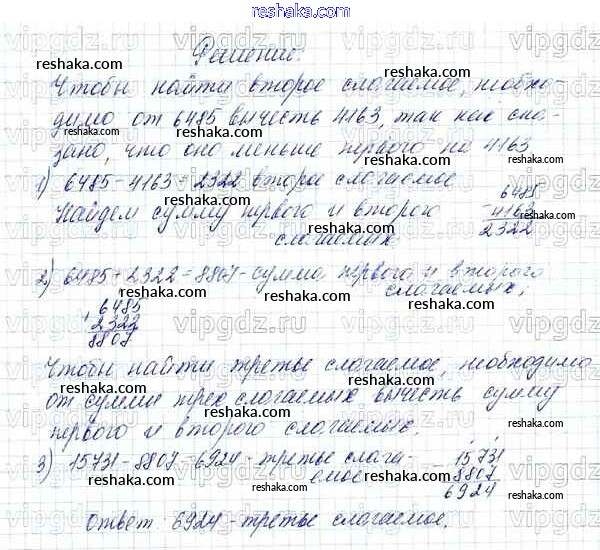 reshaka.com
Решение.
Чтобы найти второе слагаемое, необхо-
димо от 6485 вычесть 4163, так как ска-
зано, что оно меньше первого на 4163
1) 6485-4163=2322 второе слагаемое
6485
Найдем сумму первого и второго -4163
слагаемых 2322
2) 6485+2322=8807-сумма первого и второго
слагаемых;
6485
+2322
8807
Чтобы найти третье слагаемое, необходимо
от суммы трех слагаемых вычесть сумму
первого и второго слагаемых.
3) 15731-8807=6924-третье слага- 15731
емое -8807
6924
Ответ: 6924-третье слагаемое.